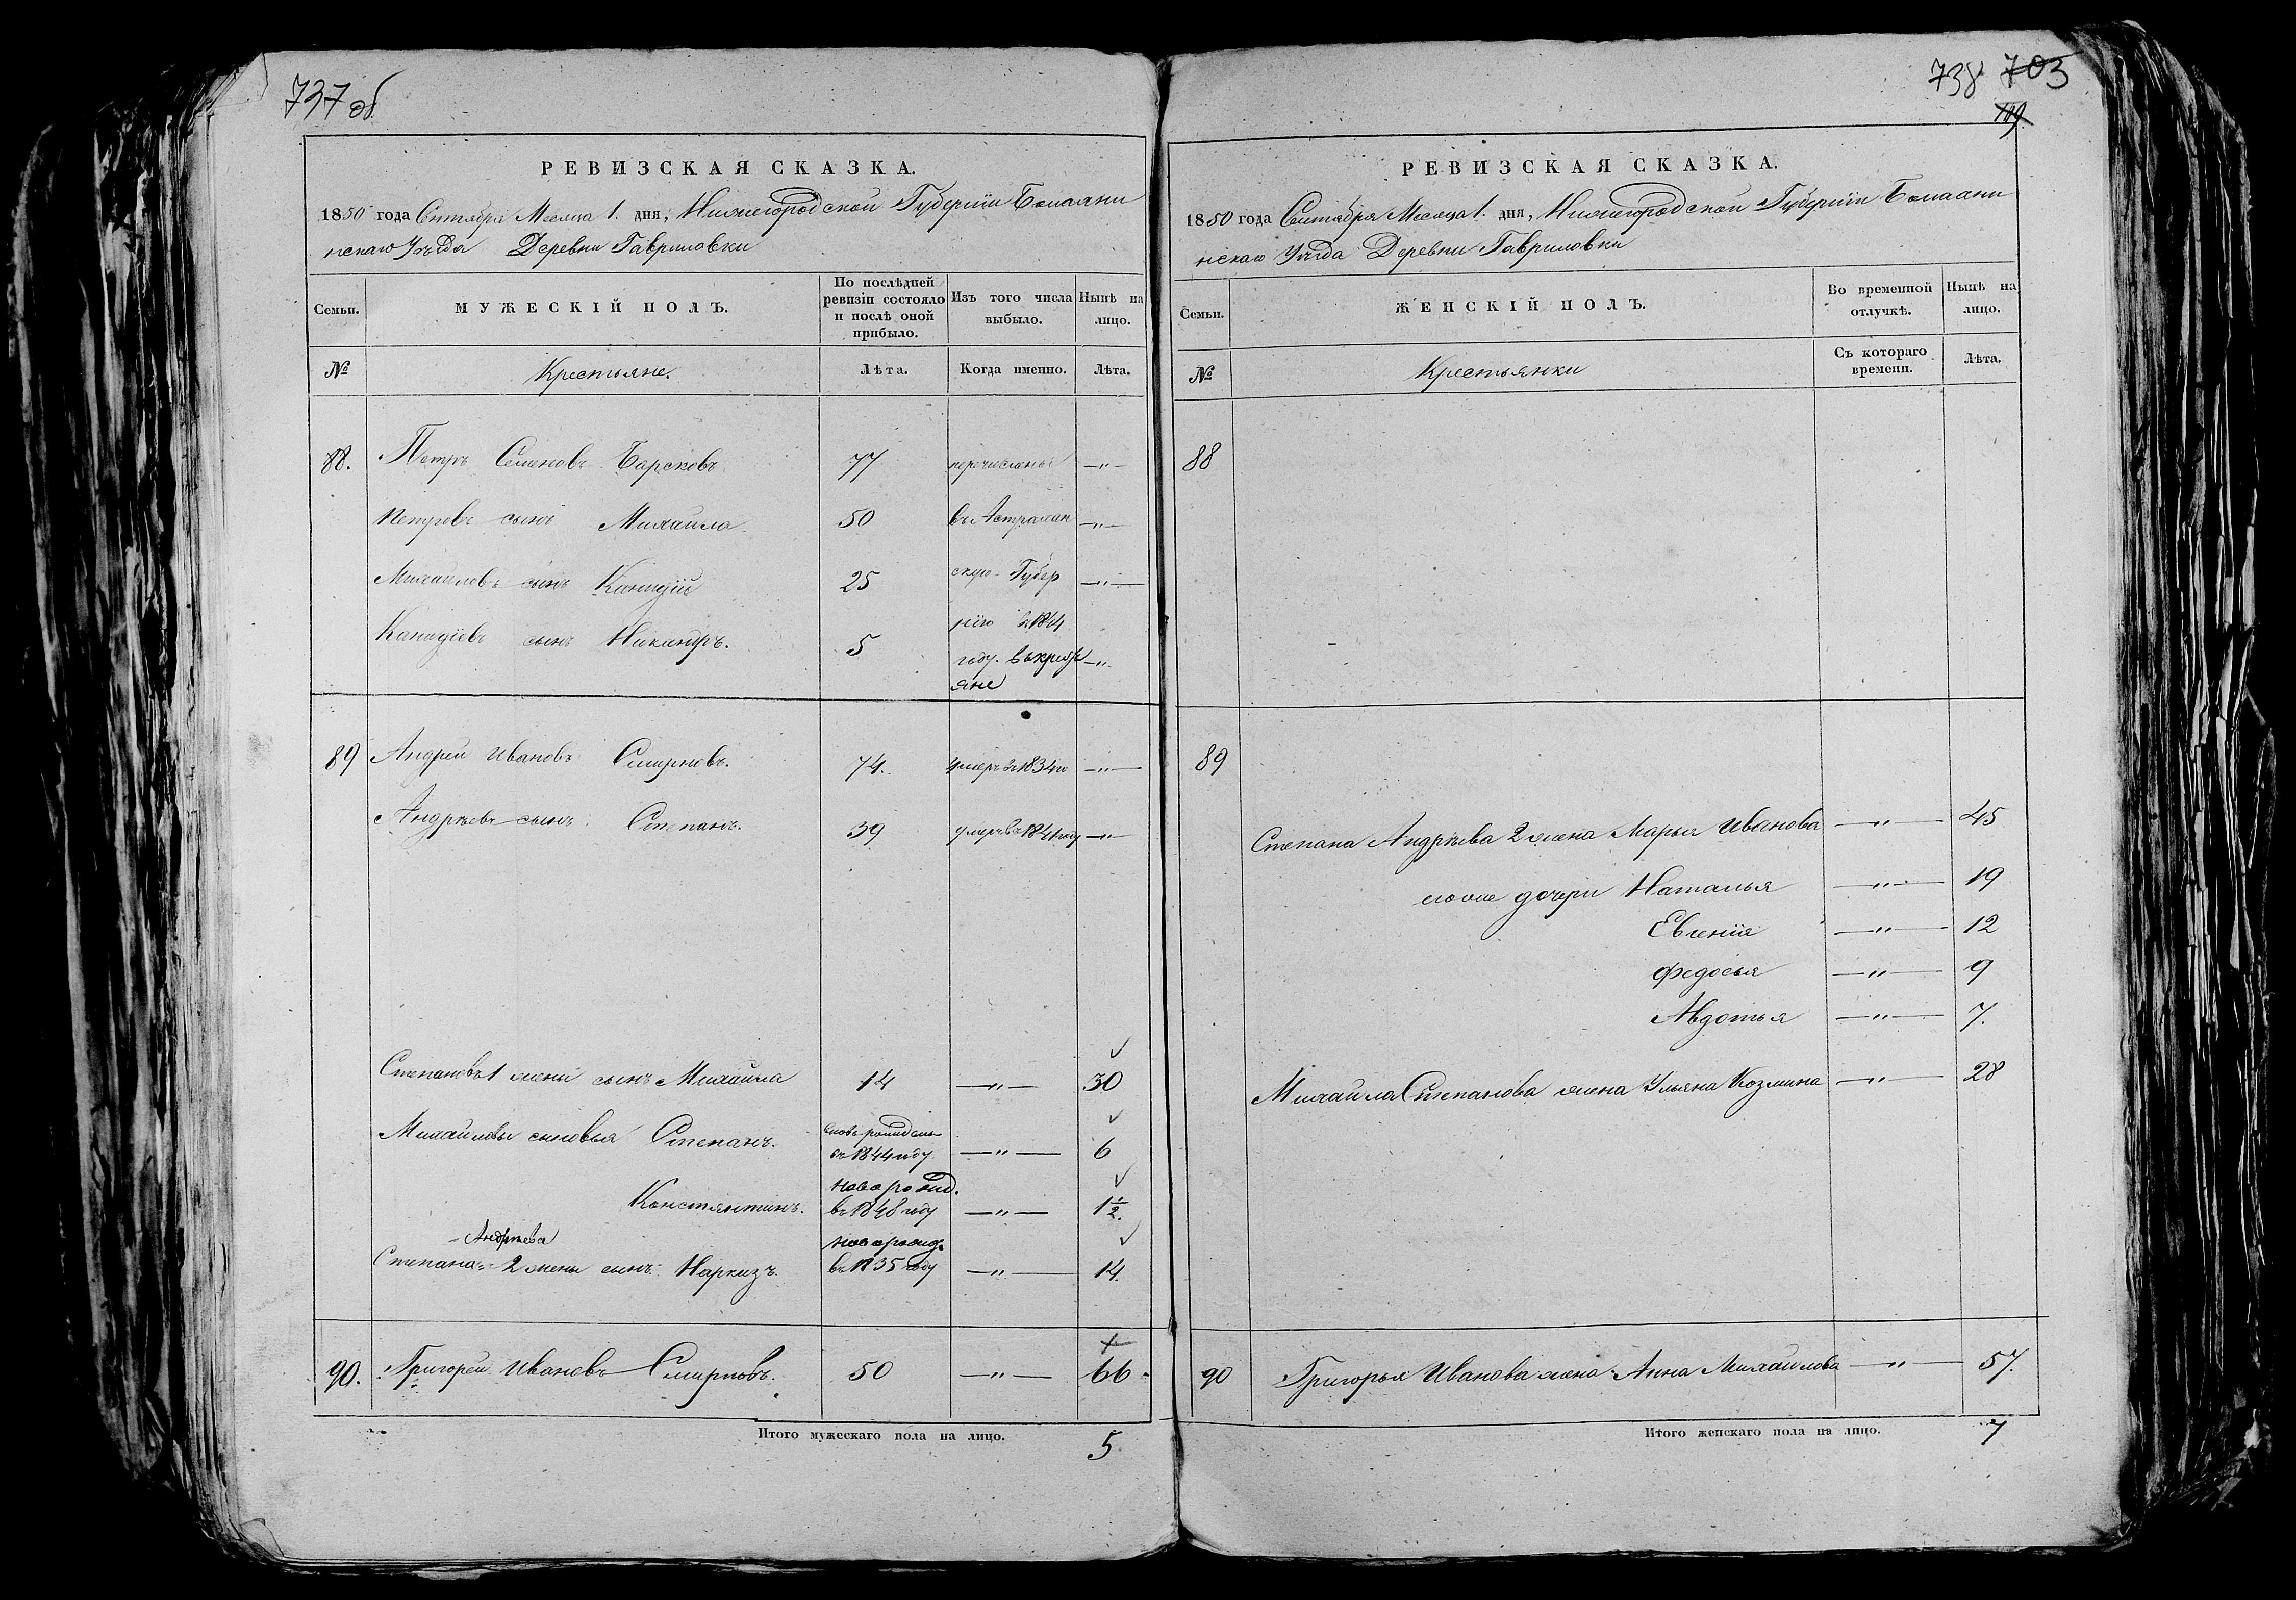 737 об
РЕВИЗСКАЯ СКАЗКА.
1850 года Сентября Месяца 1. дня, Нижегородской Губерніи Балахни
нскаго Уѣзда Деревни Гавриловки
Семьи.
МУЖЕСКІЙ ПОЛЪ.
По послѣдней ревизіи состояло и послѣ оной прибыло.
Изъ того числа выбыло.
Нынѣ на лицо.
№
Крестьяне.
Лѣта.
Когда именно.
Лѣта.
88. Петръ Семеновъ Барсковъ 77 перечислены —"—
Петровъ сынъ Михайла 50 въ Астрахан —"—
Михайловъ сынъ Канидій 25 скую Губер —"—
Канидіевъ сынъ Никандръ. 5 нію въ 1844
году. въ крестья —"—
яне
89 Андрей Ивановъ Смирновъ. 74. умеръ въ 1834 го —"—
Андрѣевъ сынъ Степанъ. 39 умеръ въ 1841 году —"—
Степановъ 1 жены сынъ Михайла 14 —"— 30
Михайловы сыновья Степанъ. въ 1844 году —"— 6
Константинъ. новорожд. въ 1848 году —"— 1½.
Андрѣева
Степана 2 жены сынъ Наркизъ. новорожд. въ 1835 году —"— 14.
90. Григорей Ивановъ Смирновъ. 50 —"— 66.
Итого мужескаго пола на лицо. 5
738 703
189
РЕВИЗСКАЯ СКАЗКА.
1850 года Сентября Месяца 1. дня, Нижегородской Губерніи Балахни
нскаго Уѣзда Деревни Гавриловки
Семьи.
ЖЕНСКІЙ ПОЛЪ.
Во временной отлучкѣ.
Нынѣ на лицо.
№
Крестьянки
Съ котораго времени.
Лѣта.
88
89
Степана Андрѣева 2 жена Марья Иванова —"— 45
дочери Наталья —"— 19
Евгенія —"— 12
Федосья —"— 9
Авдотья —"— 7.
Михайла Степанова жена Ульяна Козмина —"— 28
90 Григорья Иванова жена Анна Михайлова —"— 57.
Итого женскаго пола на лицо. 7